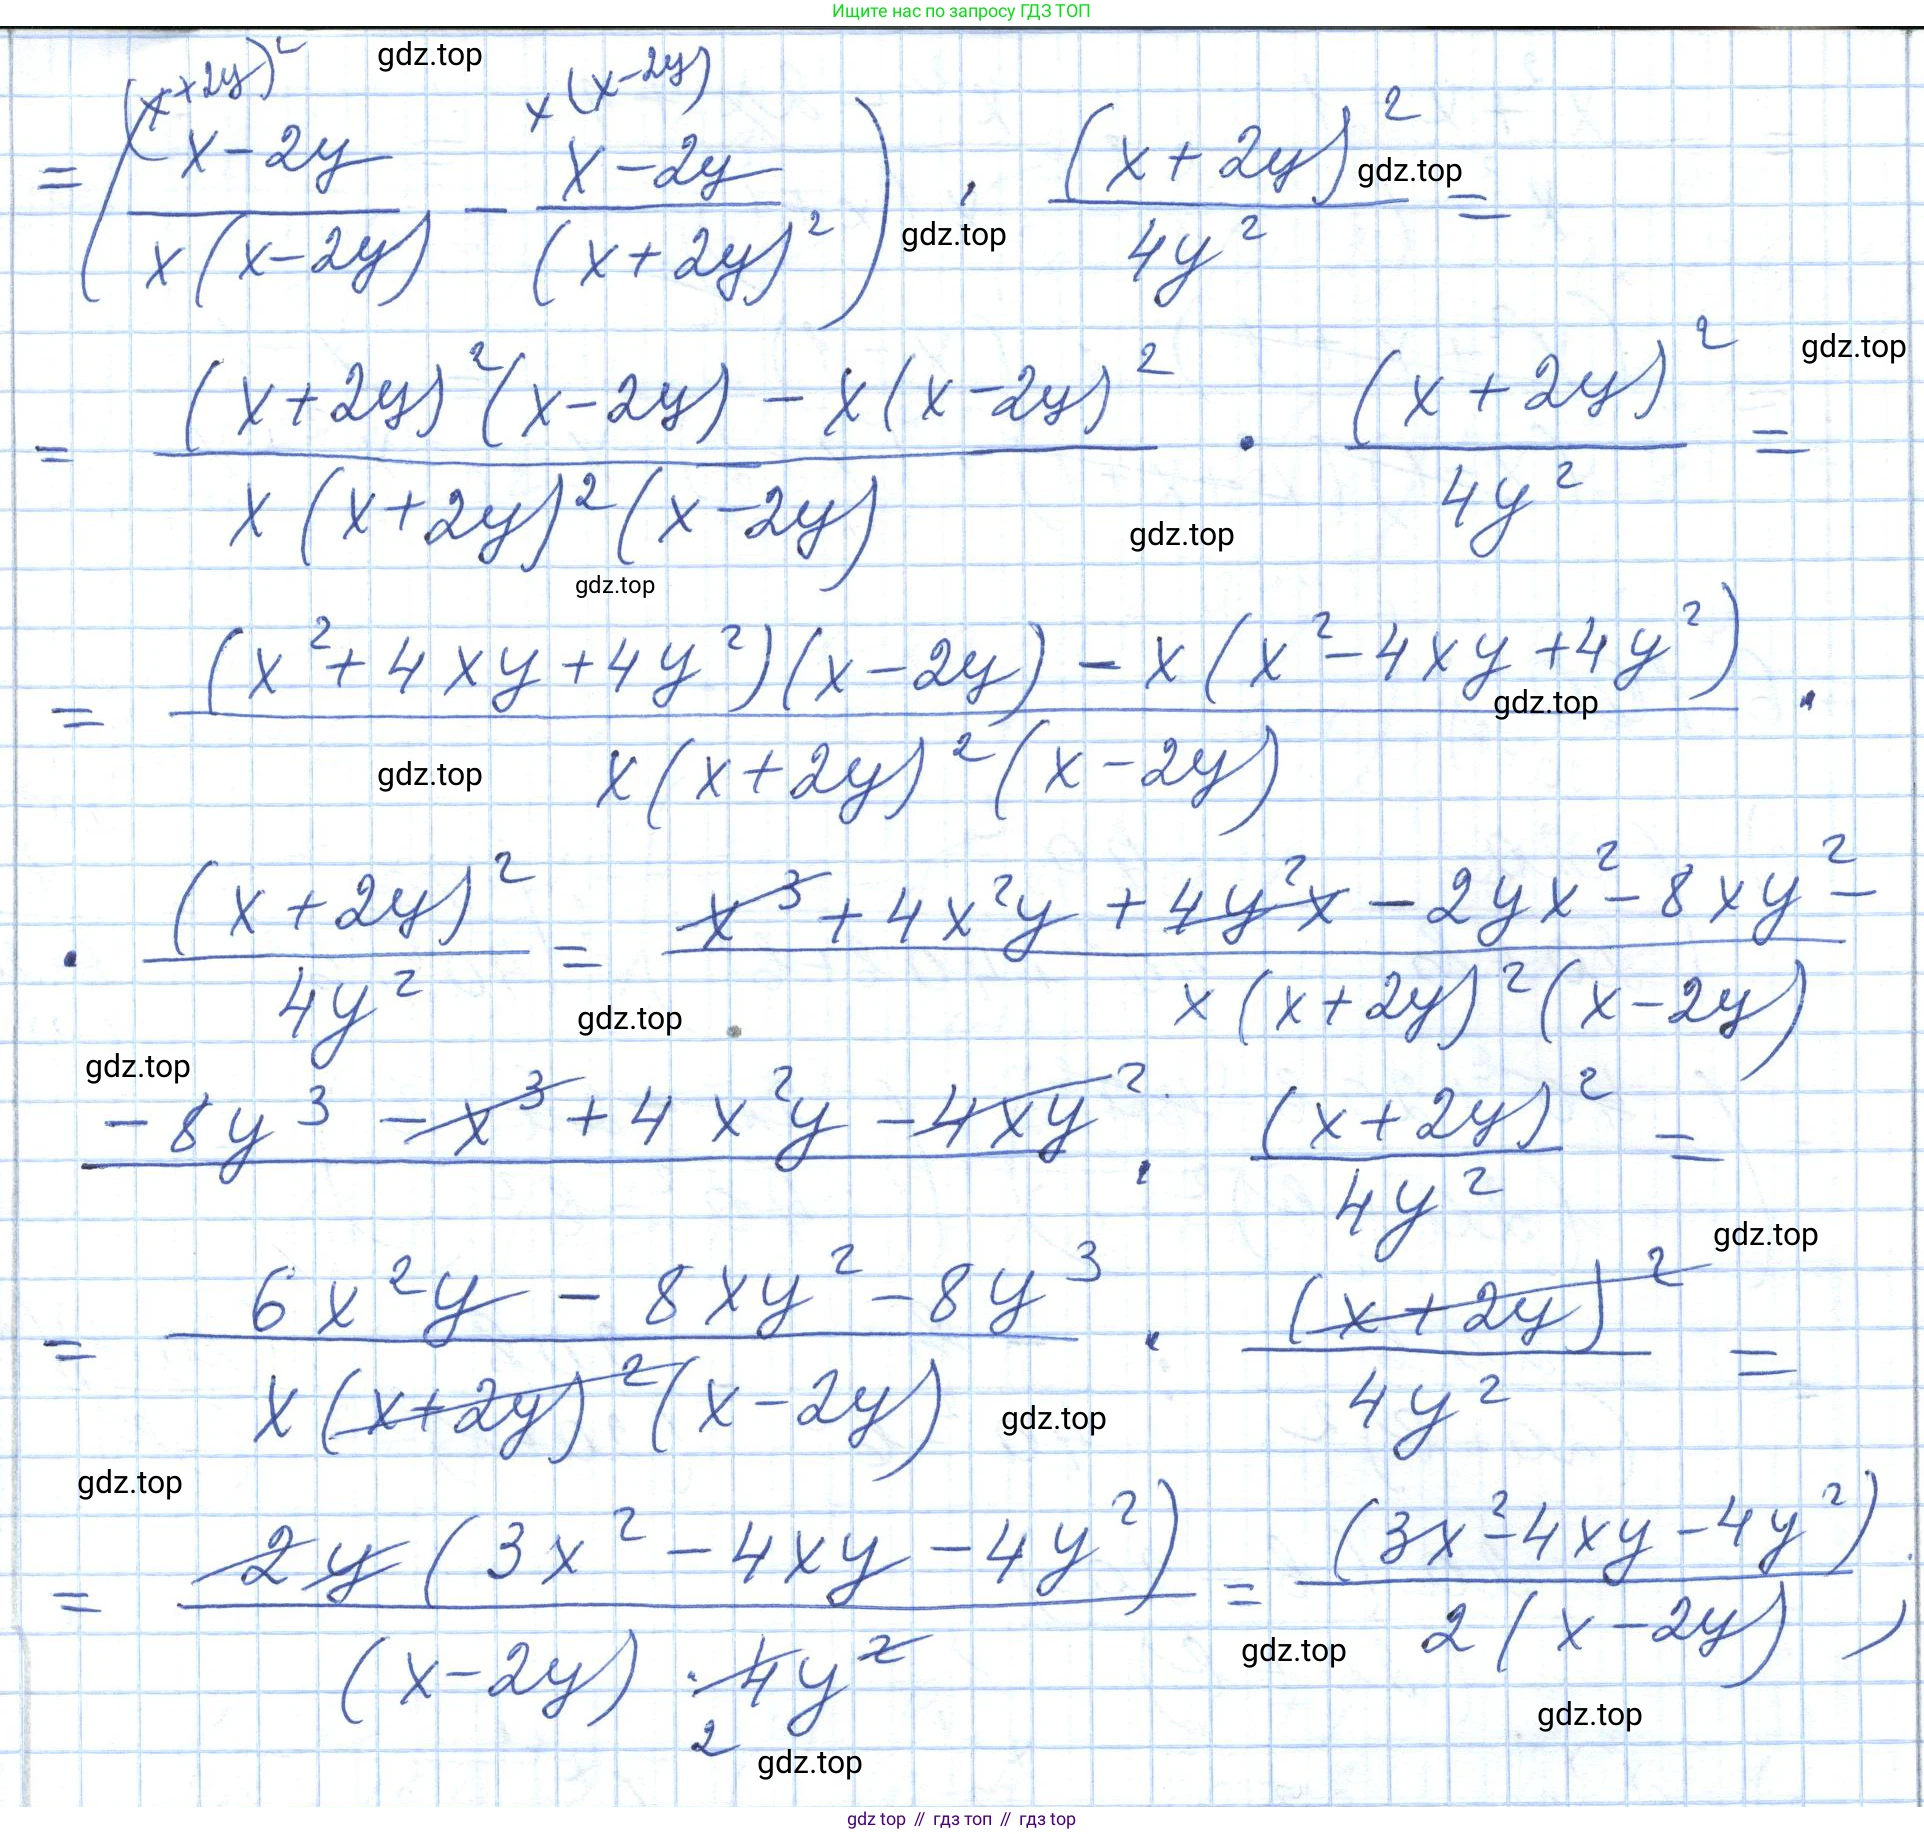 Ищите нас по запросу ГДЗ ТОП
gdz.top
(x+2y)² x(x-2y)
= ( (x-2y)/(x(x-2y)) - (x-2y)/((x+2y)²) ) · (x+2y)²/(4y²) =
gdz.top
gdz.top
gdz.top
= ((x+2y)²(x-2y) - x(x-2y)²)/(x(x+2y)²(x-2y)) · (x+2y)²/(4y²) =
gdz.top
gdz.top
= ((x²+4xy+4y²)(x-2y) - x(x²-4xy+4y²))/(x(x+2y)²(x-2y)) ·
gdz.top
gdz.top
· (x+2y)²/(4y²) = (x³+4x²y+4y²x-2yx²-8xy²-)/(x(x+2y)²(x-2y))
gdz.top
gdz.top
-8y³-x³+4x²y-4xy² · (x+2y)²/(4y²) =
gdz.top
= (6x²y-8xy²-8y³)/(x(x+2y)²(x-2y)) · (x+2y)²/(4y²) =
gdz.top
gdz.top
= (2y(3x²-4xy-4y²))/((x-2y)·4y²) = (3x²-4xy-4y²)/(2(x-2y)) ,
gdz.top
2
gdz.top
gdz.top
gdz top // гдз топ // гдз top